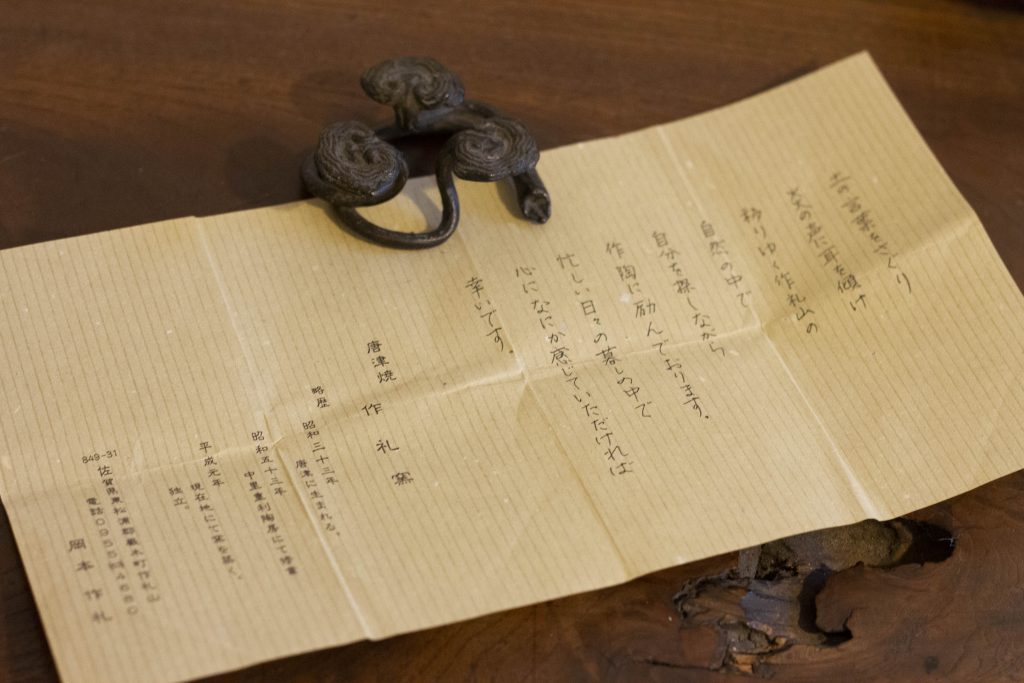 土の言葉をさぐり
炎の声に耳を傾け
移りゆく作礼山の
自然の中で
自分を探しながら
作陶に励んでおります。
忙しい日々の暮しの中で
心になにか感じていただければ
幸いです
唐津焼 作礼窯
略歴 昭和三十三年
唐津に生まれる。
昭和五十三年
中里重利陶房にて修業
平成元年
現在地にて窯を築く。
独立。
849-31
佐賀県東松浦郡厳木町作礼山
電話0955㈥4680
岡本 作礼